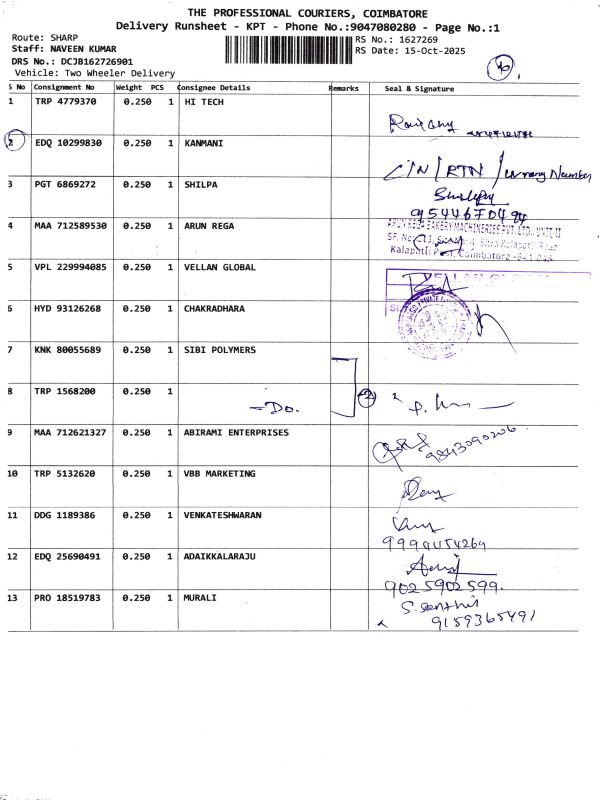 THE PROFESSIONAL COURIERS, COIMBATORE
Delivery Runsheet - KPT - Phone No.:9047080280 - Page No.:1
Route: SHARP
RS No.: 1627269
Staff: NAVEEN KUMAR
RS Date: 15-Oct-2025
DRS No.: DCJB162726901
Vehicle: Two Wheeler Delivery
S No Consignment No Weight PCS Consignee Details Remarks Seal & Signature
1 TRP 4779370 0.250 1 HI TECH
2 EDQ 10299830 0.250 1 KANMANI
C/N / RTN / wrong Number
3 PGT 6869272 0.250 1 SHILPA
9544670494
4 MAA 712589530 0.250 1 ARUN REGA
ARUN REGA BAKERY MACHINERIES PVT. LTD., UNIT-II
Kalapatti Coimbatore
5 VPL 229994085 0.250 1 VELLAN GLOBAL
6 HYD 93126268 0.250 1 CHAKRADHARA
7 KNK 80055689 0.250 1 SIBI POLYMERS
8 TRP 1568200 0.250 1 -Do. 2
9 MAA 712621327 0.250 1 ABIRAMI ENTERPRISES
9843090206
10 TRP 5132620 0.250 1 VBB MARKETING
11 DDG 1189386 0.250 1 VENKATESHWARAN
9994454269
12 EDQ 25690491 0.250 1 ADAIKKALARAJU
9025902599.
13 PRO 18519783 0.250 1 MURALI
S. Senthil
9159365491